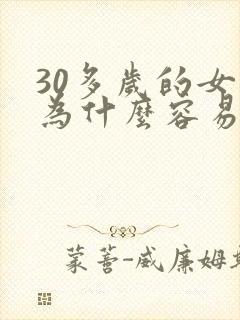 30多歲的女
為什麼容易
蒙蒼-威廉姆